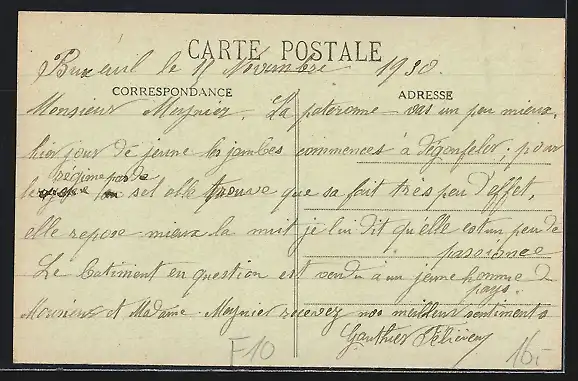 CARTE POSTALE
Buxeuil le 11 Novembre 1930.
CORRESPONDANCE
ADRESSE
Monsieur Meynier, La patronne vas un peu mieux,
hier jour de jeune les jambes commences à dégonfler, pour
le régime pas de
sel elle trouve que sa fait très peu d'effet,
elle repose mieux la nuit je lui dit qu'elle est un peu de
passionée
Le batiment en question est vendu à un jeune homme d
pays.
Monsieur et Madame Meynier recevez nos meilleur sentiments
Gauthier
F10
16-